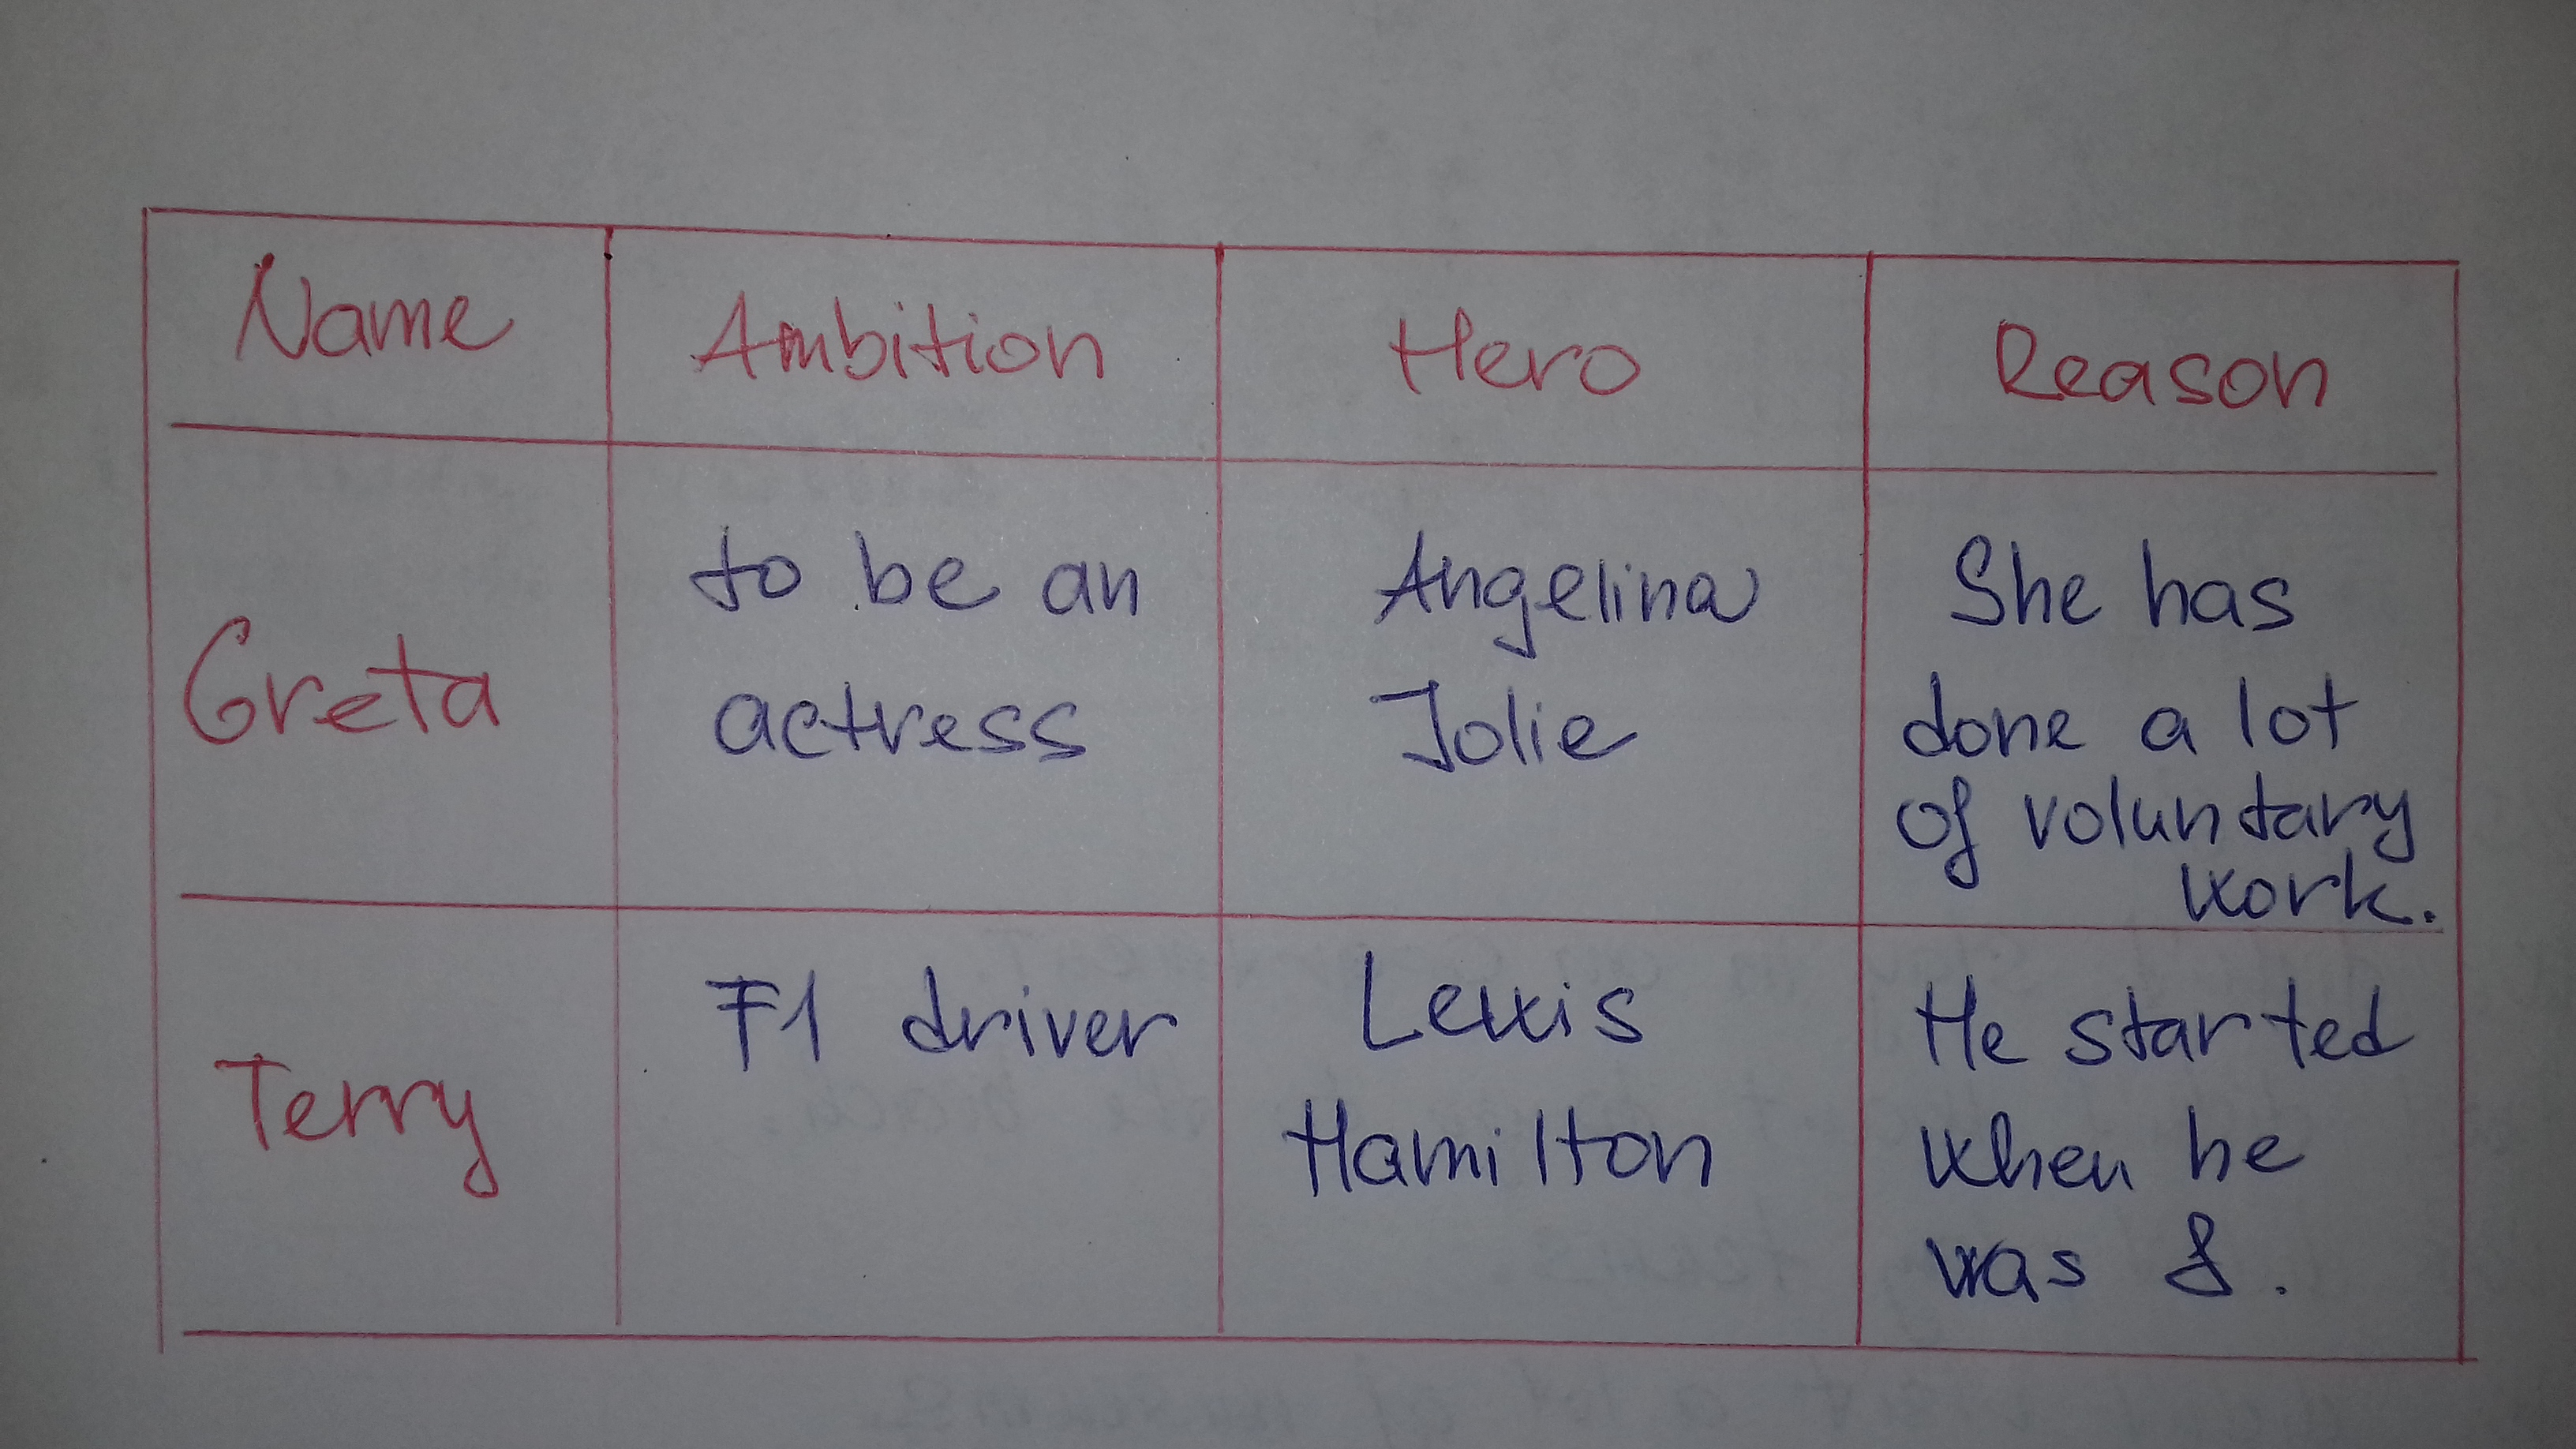 Name Ambition Hero Reason
Greta
to be an
actress
Angelina
Jolie
She has
done a lot
of voluntary
work.
Terry
F1 driver
Lewis
Hamilton
He started
when he
was 8.